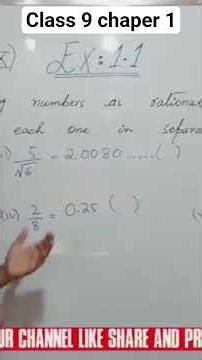 Class 9 chaper 1
Ex: 1.1
numbers as rational
each one in separa
5/√6 = 2.0080.....( )
(iv) 2/8 = 0.25 ( )
UR CHANNEL LIKE SHARE AND PR